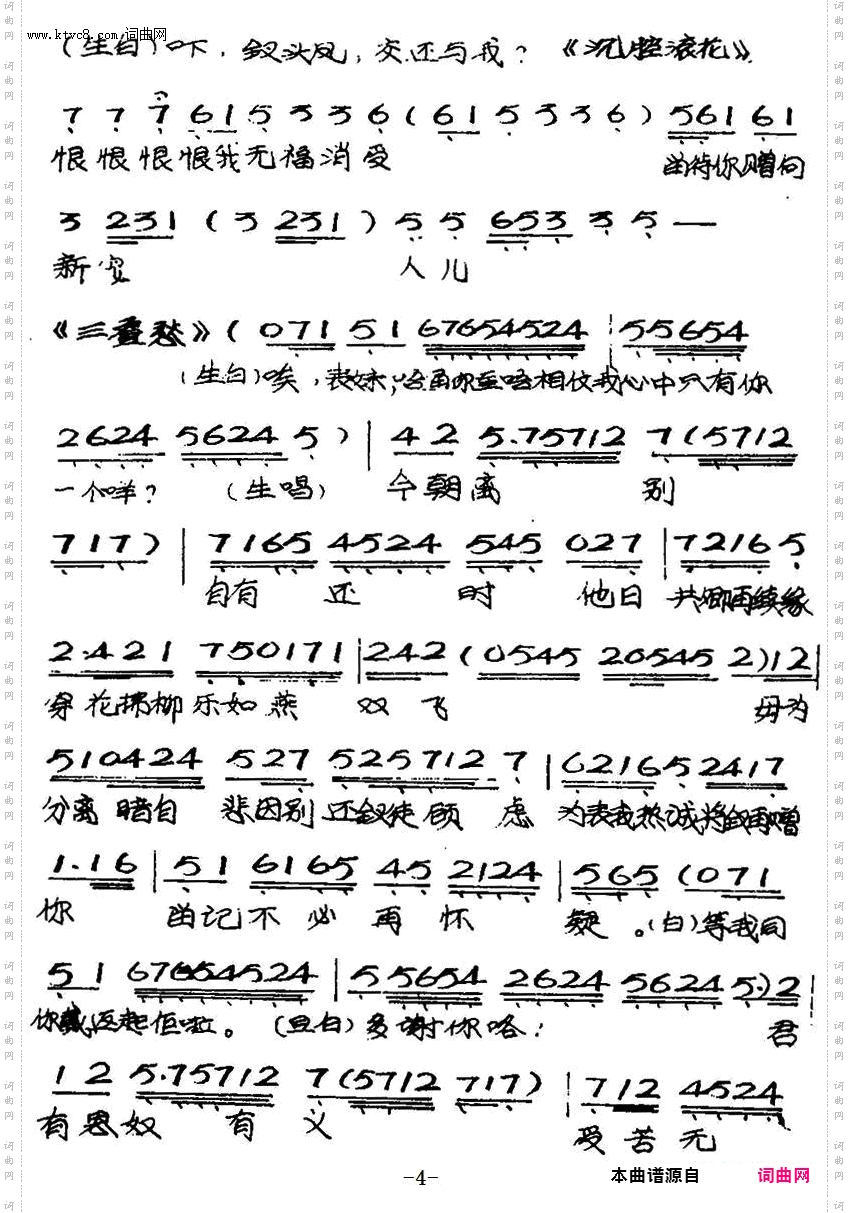 www.ktvc8.com 词曲网
(生白)吓,钗头凤,交还与我?《沉腔滚花》
7 7 7 61 5 3 3 6 (61 5 3 3 6) 561 61
恨恨恨恨我无福消受 待你赠向
3 231 (3 231) 5 5 653 3 5 —
新 人儿
《三叠愁》(071 51 67654524 | 55654
(生白)唉,表妹, 相伩我心中只有你
2624 5624 5) | 42 5.75712 7(5712
一个咩? (生唱) 今朝离 别
717) | 7165 4524 545 027 | 72165
自有 还 时 他日 共卿再续缘
2.421 750171 | 242 (0545 20545 2)12 |
穿花拂柳乐如燕 双飞 毋为
510424 527 525712 7 | 62165 2417
分离暗自 悲因别还钗徒顾虑 为表我热诚将钗再赠
1.16 | 51 6165 45 2124 | 565 (071
你 记不必再怀 疑。(白)等我同
51 67654524 | 55654 2624 5624 5.)2 |
你戴返起佢啦。 (旦白)多谢你咯! 君
12 5.75712 7(5712 717) | 712 4524
有恩奴 有 义 受苦无
-4-
本曲谱源自 词曲网